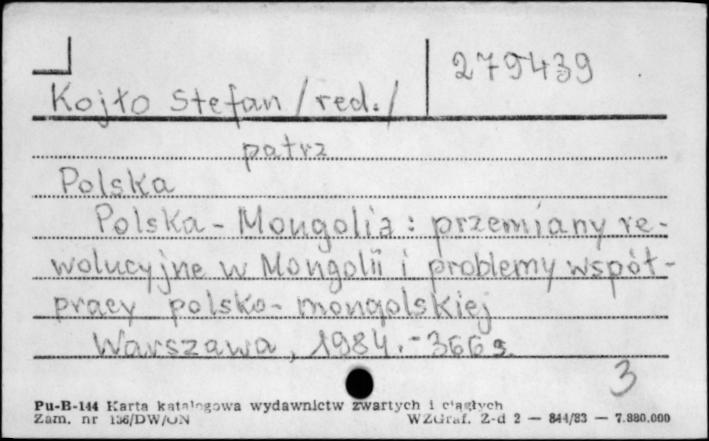 279439
Kojło Stefan /red./
patrz
Polska
Polska - Mongolia : przemiany re-
wolucyjne w Mongolii i problemy współ-
pracy polsko-mongolskiej
Warszawa, 1984. - 366 s.
3
Pu-B-144 Karta katalogowa wydawnictw zwartych i ciągłych
Zam. nr 136/DW/ON WZGraf. Z-d 2 — 844/83 — 7.880.000